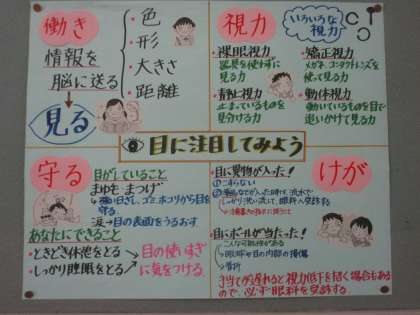 働き
情報を
脳に送る
見る
・色
・形
・大きさ
・距離
視力
いろいろな
視力
・裸眼視力
器具を使わずに
見る力
・矯正視力
メガネ、コンタクトレンズを
使って見る力
・静止視力
止まっているものを
見分ける力
・動体視力
動いているものを目で
追いかけて見る力
目に注目してみよう
守る
目がしていること
まゆも まつげ
強い日ざし、ゴミ、ホコリから目を
守る。
涙→目の表面をうるおす
あなたにできること
・ときどき休憩をとる
・しっかり睡眠をとる
目の使いすぎ
に気をつける。
けが
目に異物が入った!
①こすらない
しっかり洗い流して、眼科へ受診する
目にボールが当たった!
こんな可能性がある
眼球や目の内部の損傷
骨折
手当てが遅れると視力低下を招く場合もある
ので、必ず眼科を受診する